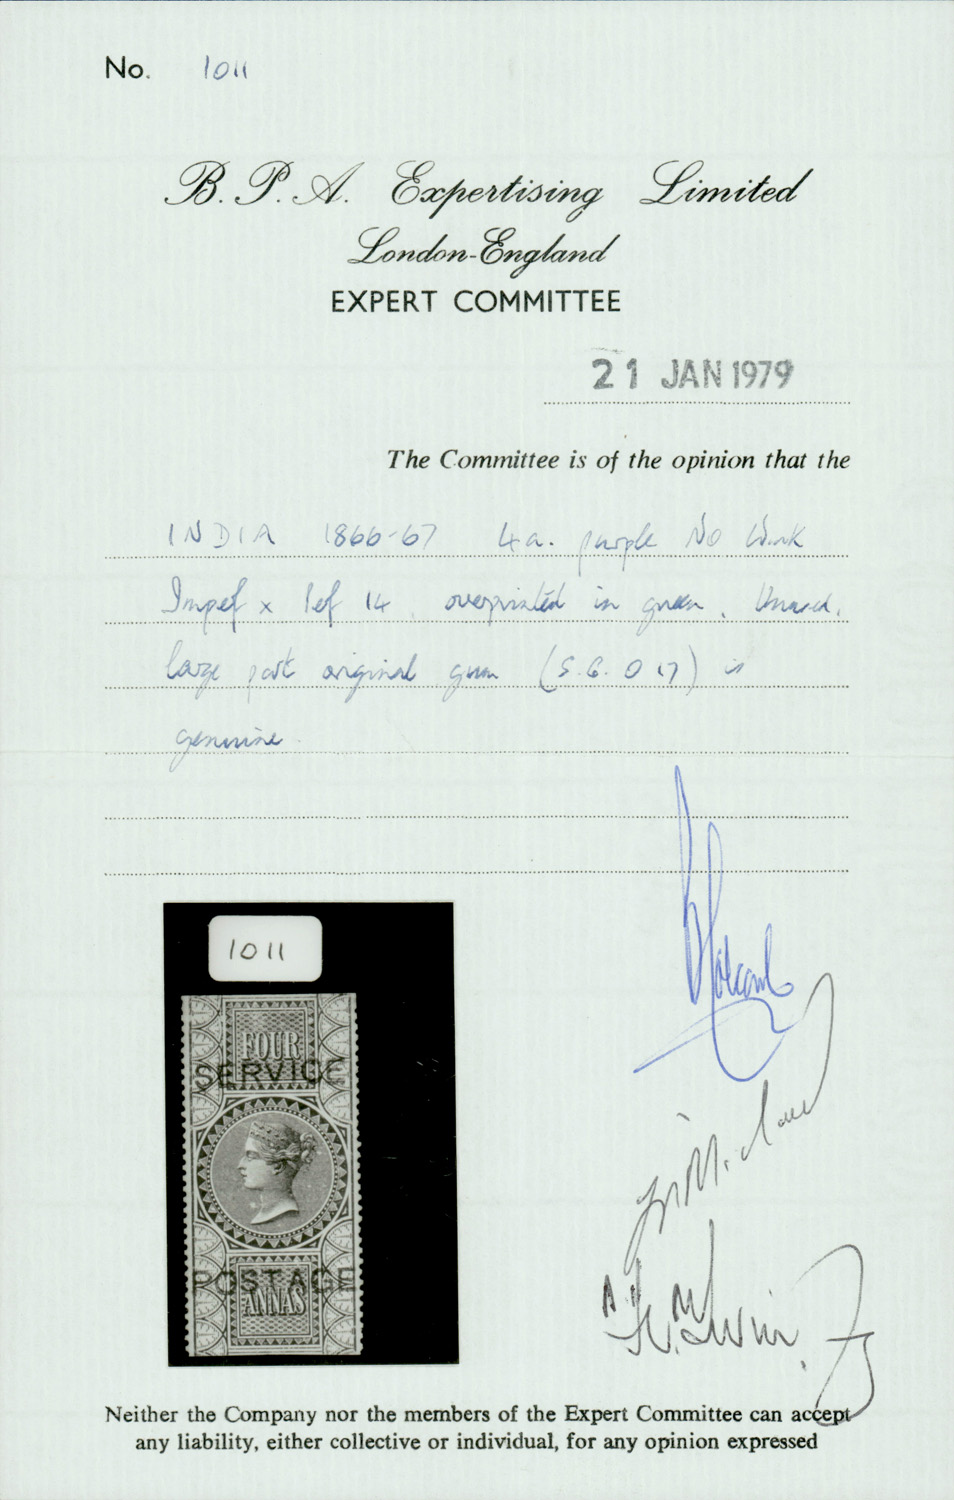 No. 1011
B. P. A. Expertising Limited
London-England
EXPERT COMMITTEE
21 JAN 1979
The Committee is of the opinion that the
INDIA 1866-67 4a. purple No Wmk
Imperf x Perf 14. overprinted in green. Unused,
large part original gum (S.G. O 17) is
genuine.
1011
FOUR
SERVICE
POSTAGE
ANNAS
Neither the Company nor the members of the Expert Committee can accept
any liability, either collective or individual, for any opinion expressed